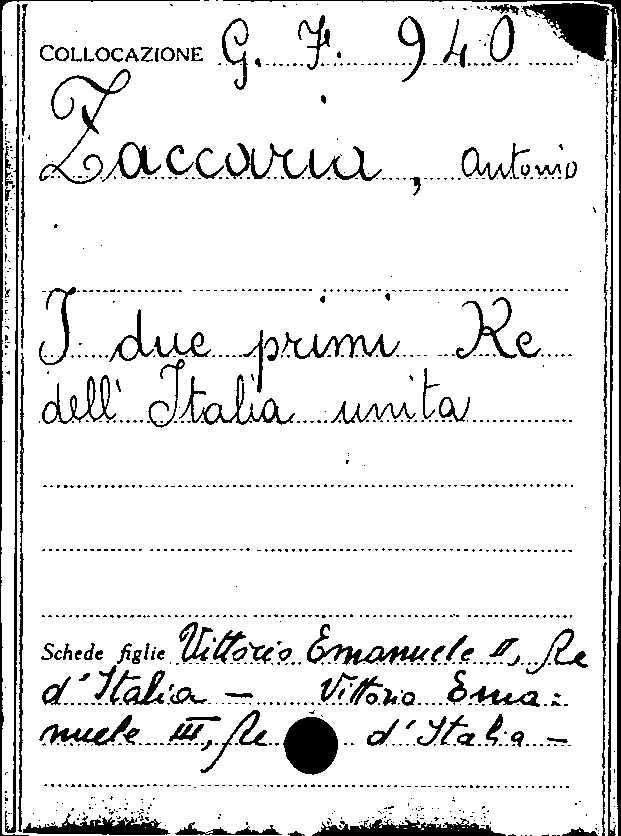 COLLOCAZIONE G. F. 940
Zaccaria, Antonio
I due primi Re
dell' Italia unita
Schede figlie Vittorio Emanuele II, Re
d'Italia — Vittorio Ema=
nuele III, Re d'Italia —